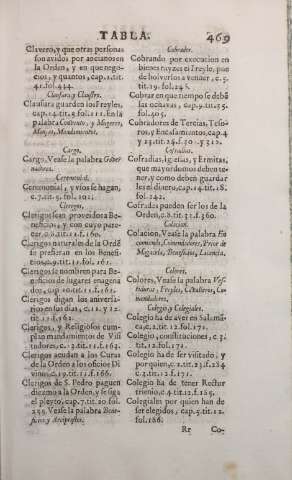 TABLA. 469
Clavero, y que otras personas
son avidos por ancianos en
la Orden, y en que negocios,
y quantos, cap.1.tit.
41.fol.434.
Clausura y Claustro.
Clausura guarden los Freyles,
cap.4.tit.5.fol.111. En la
palabra Convento, y Mugeres,
Monjes, Mandamientos.
Cargo.
Cargo. Vease la palabra Governadores.
Ceremonial.
Ceremonial, y vsos se hagan,
c.7.tit.9. fol. 102.
Clerigos.
Clerigos sean proveidos a Beneficios,
y con cuyo parecer,
fol.160.
Clerigos naturales de la Ordē
se prefieran en los Beneficios,
c.9.tit.11.fol. 161.
Clerigos se nombren para Beneficios
de lugares enagenados,
cap.10.tit.11.fol. 161.
Clerigos digan los aniversarios
en sus dias, c.11. y 12.
tit.11.fol.162.
Clerigos, y Religiosos cumplan
mandamientos de Visitadores,
c.13.tit.11.fol.163.
Clerigos acudan a los Curas
de la Orden a los oficios Divinos,
c.19.tit.11.f.166.
Clerigos de S. Pedro paguen
diezmo a la Orden, y se siga
el pleyto, cap.7.tit.20 fol.
255. Vease la palabra Beneficios,
y Arciprestes.
Cobrador.
Cobrando por execucion en
bienes rayzes el Freyle, pue
de bolverlos a vender, c.5.
tit.19. fol.246.
Cobrar en que tiempo se debē
las ochavas, cap.9.tit.35.
fol.405.
Cobradores de Tercias, Tesoros,
y Encasamientos, cap.4
y 23.tit.24.f.30 . y 312.
Cofradias.
Cofradias, Iglesias, y Ermitas,
que mayordomos deben tener,
y como deben guardar
les el dinero, cap.14.tit.18.
fol. 242.
Cofradas pueden ser los de la
Orden, c.8.tit.31.f.360.
Colacion.
Colacion, Vease la palabra Encomienda,
Comendadores, Prior de
Magazela, Beneficios, Licencia.
Colores.
Colores, Vease la palabra Vestiduras,
Freyles, Cavalleros, Comendadores.
Colegio, y Colegiales.
Colegio ha de aver en Salamāca,
c.2.tit.12.fol.171.
Colegio, constituciones, c.3.
tit.12. fol.171.
Colegio ha de ser visitado, y
por quien, c.2.tit.23.f.284
c.3.tit.12.f.171.
Colegio ha de tener Refitur
trienio, c.4.tit.12.f.185.
Colegiales por quien han de
ser elegidos, cap.5.tit.12.
fol.186.
Rr Co-